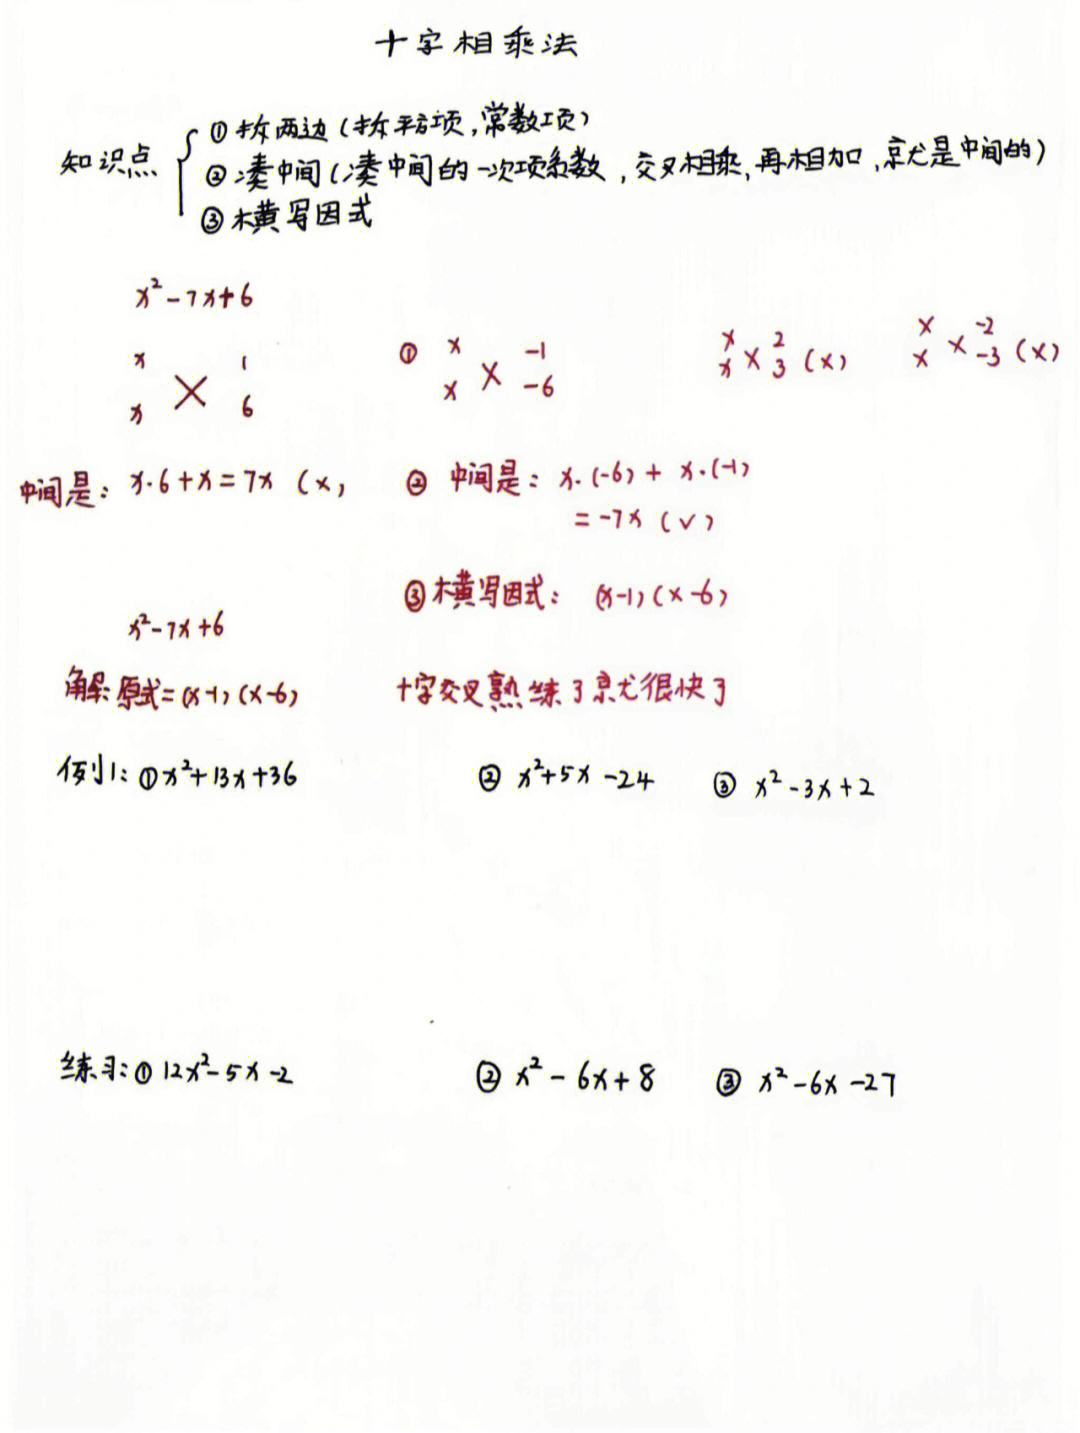 十字相乘法
知识点
①拆两边(拆平方项,常数项)
②凑中间(凑中间的一次项系数,交叉相乘,再相加,就是中间的)
③横写因式
x²-7x+6
x 1
× 
x 6
① x -1
×
x -6
x 2
×
x 3 (×)
x -2
×
x -3 (×)
中间是: x·6+x=7x (×)
② 中间是: x·(-6)+x·(-1)
=-7x (√)
③横写因式: (x-1)(x-6)
x²-7x+6
解:原式=(x-1)(x-6)
十字交叉熟练了就很快了
例1:①x²+13x+36 ② x²+5x-24 ③ x²-3x+2
练习:① 12x²-5x-2 ② x²-6x+8 ③ x²-6x-27